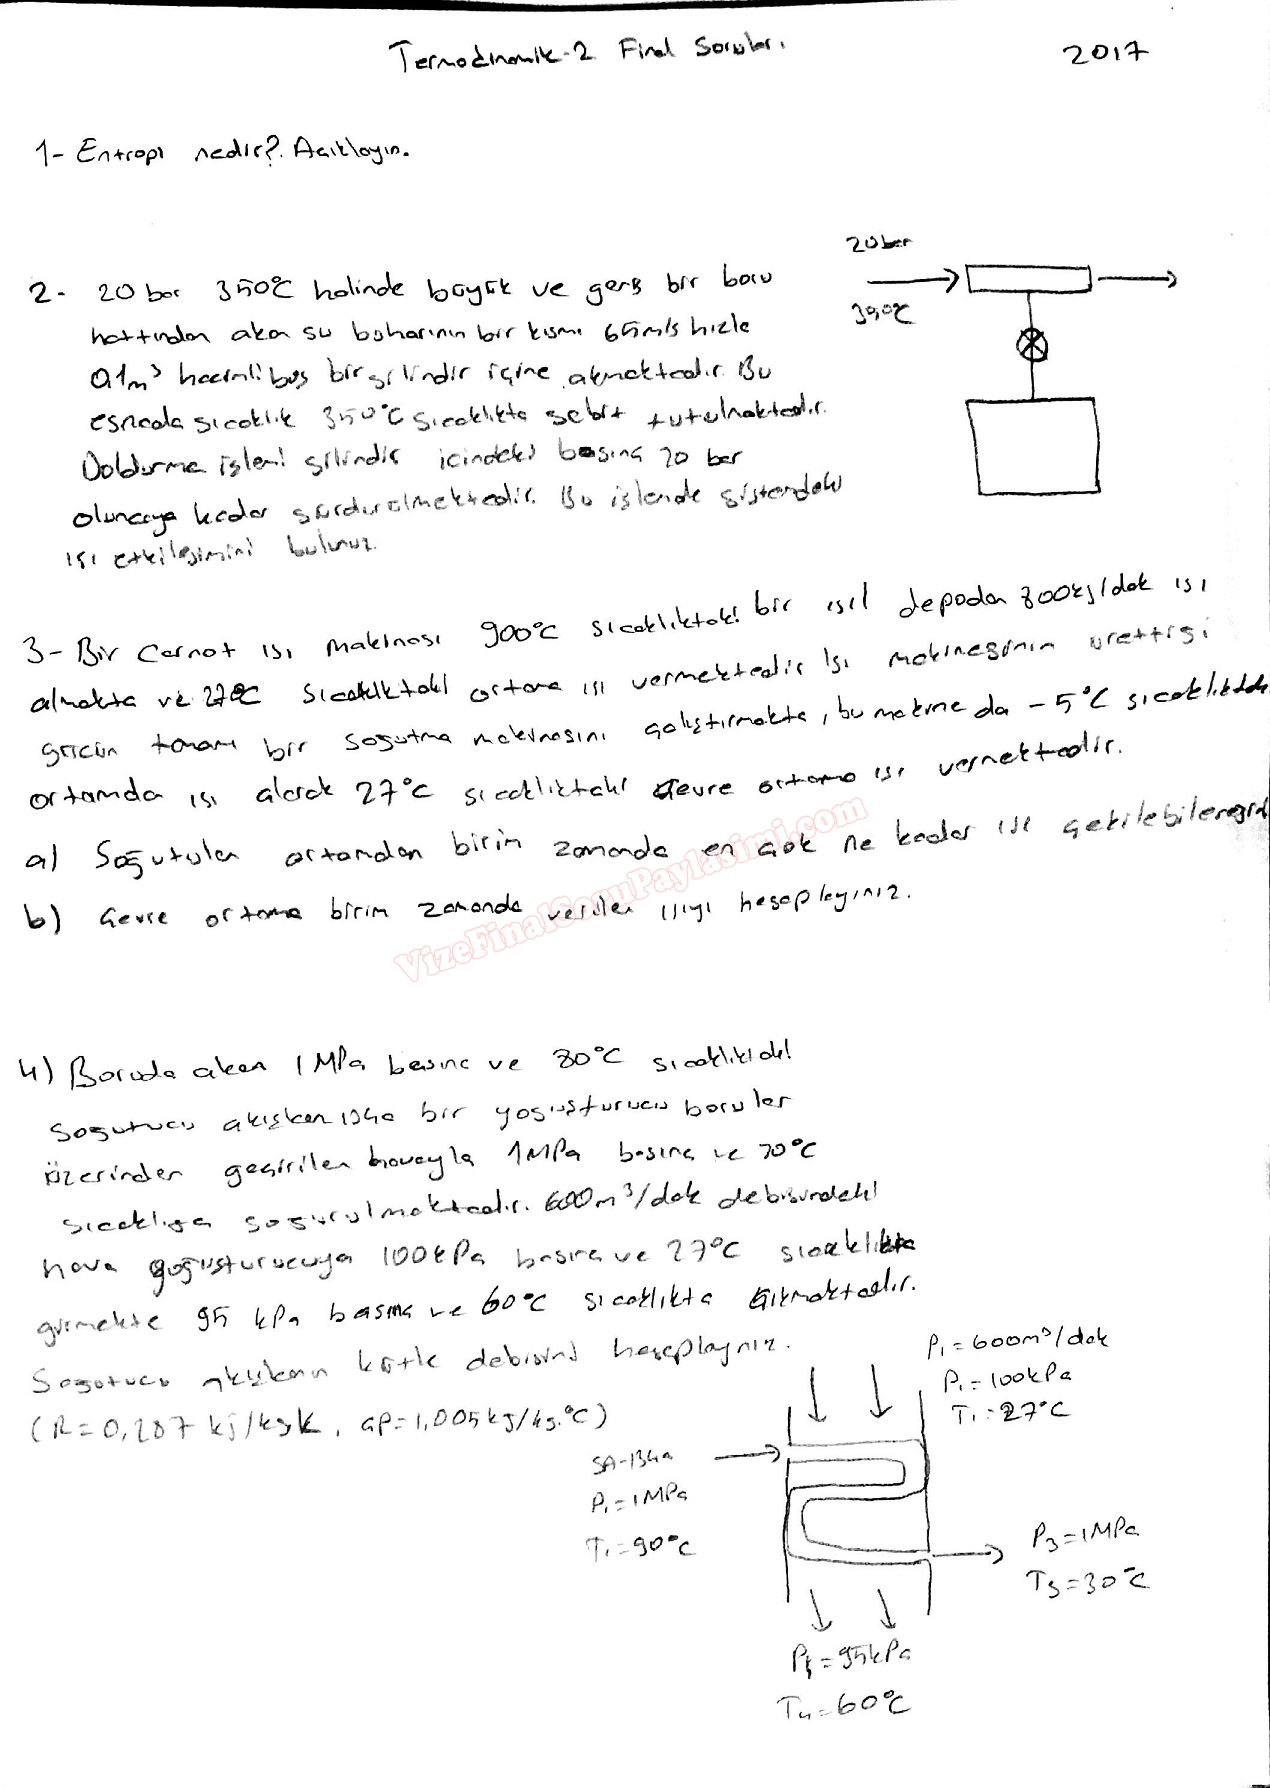 Termodinamik-2 Final Soruları
2017
1- Entropi nedir? Açıklayın.
20 bar
350°C
2- 20 bar 350°C halinde büyük ve geniş bir boru
hattından akan su buharının bir kısmı 65m/s hızla
0,1m³ hacimli boş bir silindir içine akmaktadır. Bu
esnada sıcaklık 350°C sıcaklıkta sabit tutulmaktadır.
Doldurma işlemi silindir içindeki basınç 20 bar
oluncaya kadar sürdürülmektedir. Bu işlemde sistemdeki
ısı etkileşimini bulunuz.
3- Bir Carnot ısı makinası 900°C sıcaklıktaki bir ısıl depodan 800kj/dak ısı
almakta ve 27°C sıcaklıktaki ortama ısı vermektedir Isı makinesinin ürettiği
gücün tamamı bir soğutma makinasını çalıştırmakta, bu makine da -5°C sıcaklıktaki
ortamda ısı alarak 27°C sıcaklıktaki çevre ortama ısı vermektedir.
a) Soğutulan ortamdan birim zamanda en çok ne kadar ısı çekilebileceğini
b) Çevre ortama birim zamanda verilen ısıyı hesaplayınız.
VizeFinalSoruPaylasimi.com
4) Boruda akan 1 MPa basınç ve 80°C sıcaklıktaki
soğutucu akışkan 134a bir yoğuşturucu borular
üzerinden geçirilen havayla 1MPa basınç ve 30°C
sıcaklığa soğurulmaktadır. 600m³/dak debisindeki
hava yoğuşturucuya 100kPa basınç ve 27°C sıcaklıkta
girmekte 95 kPa basınç ve 60°C sıcaklıkta çıkmaktadır.
Soğutucu akışkanın kütle debisini hesaplayınız.
(R=0,287 kj/kgK, cp=1,005kj/kg.°C)
P₁=600m³/dak
P₁=100kPa
T₁=27°C
SA-134a
P₁=1MPa
T₁=90°C
P₃=1MPa
T₃=30°C
=95kPa
T₄=60°C